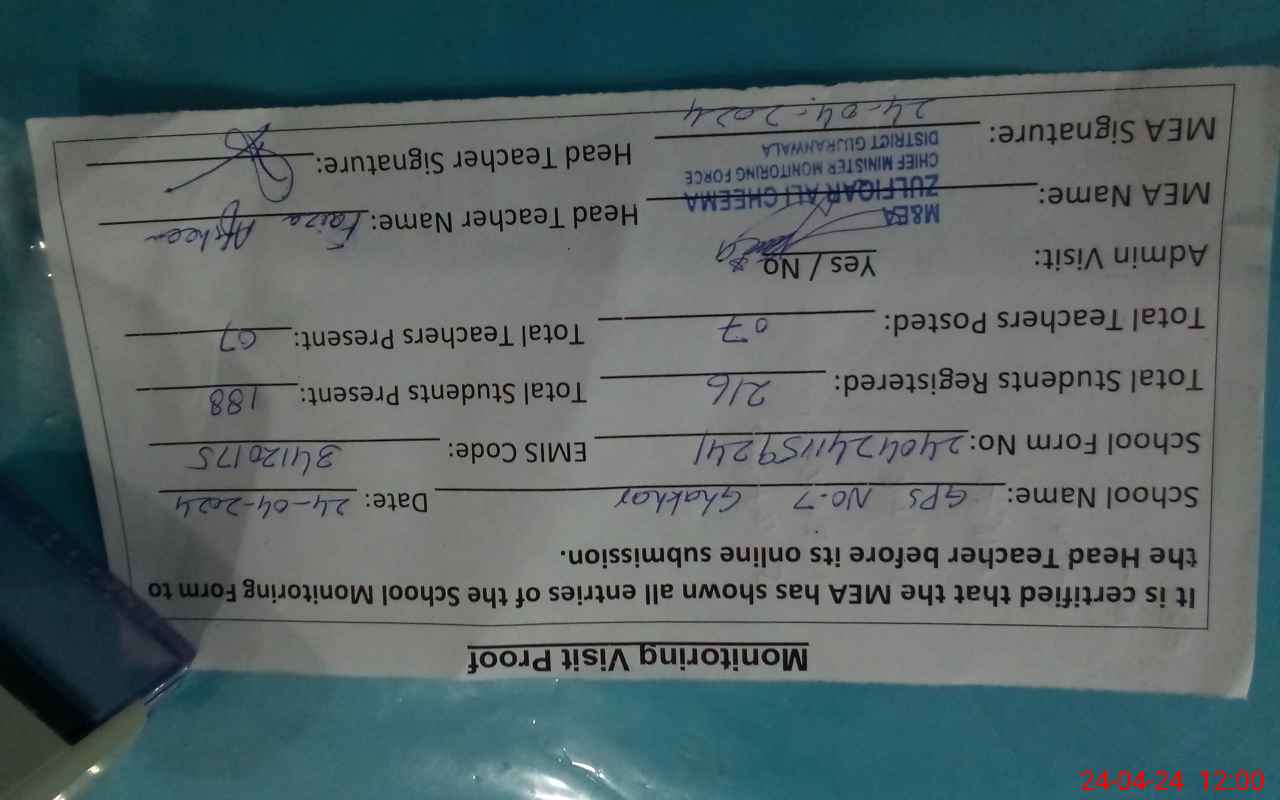 Monitoring Visit Proof
It is certified that the MEA has shown all entries of the School Monitoring Form to
the Head Teacher before its online submission.
School Name: GPS NO.7 Ghakhar Date: 24-04-2024
School Form No: 2404241159241 EMIS Code: 34120175
Total Students Registered: 216 Total Students Present: 188
Total Teachers Posted: 07 Total Teachers Present: 07
Admin Visit: Yes / No
MEA Name: Head Teacher Name: Faiza Afsheen
M&EA
ZULFIQAR ALI CHEEMA
CHIEF MINISTER MONITORING FORCE
DISTRICT GUJRANWALA
MEA Signature: 24-04-2024 Head Teacher Signature:
24-04-24 12:00